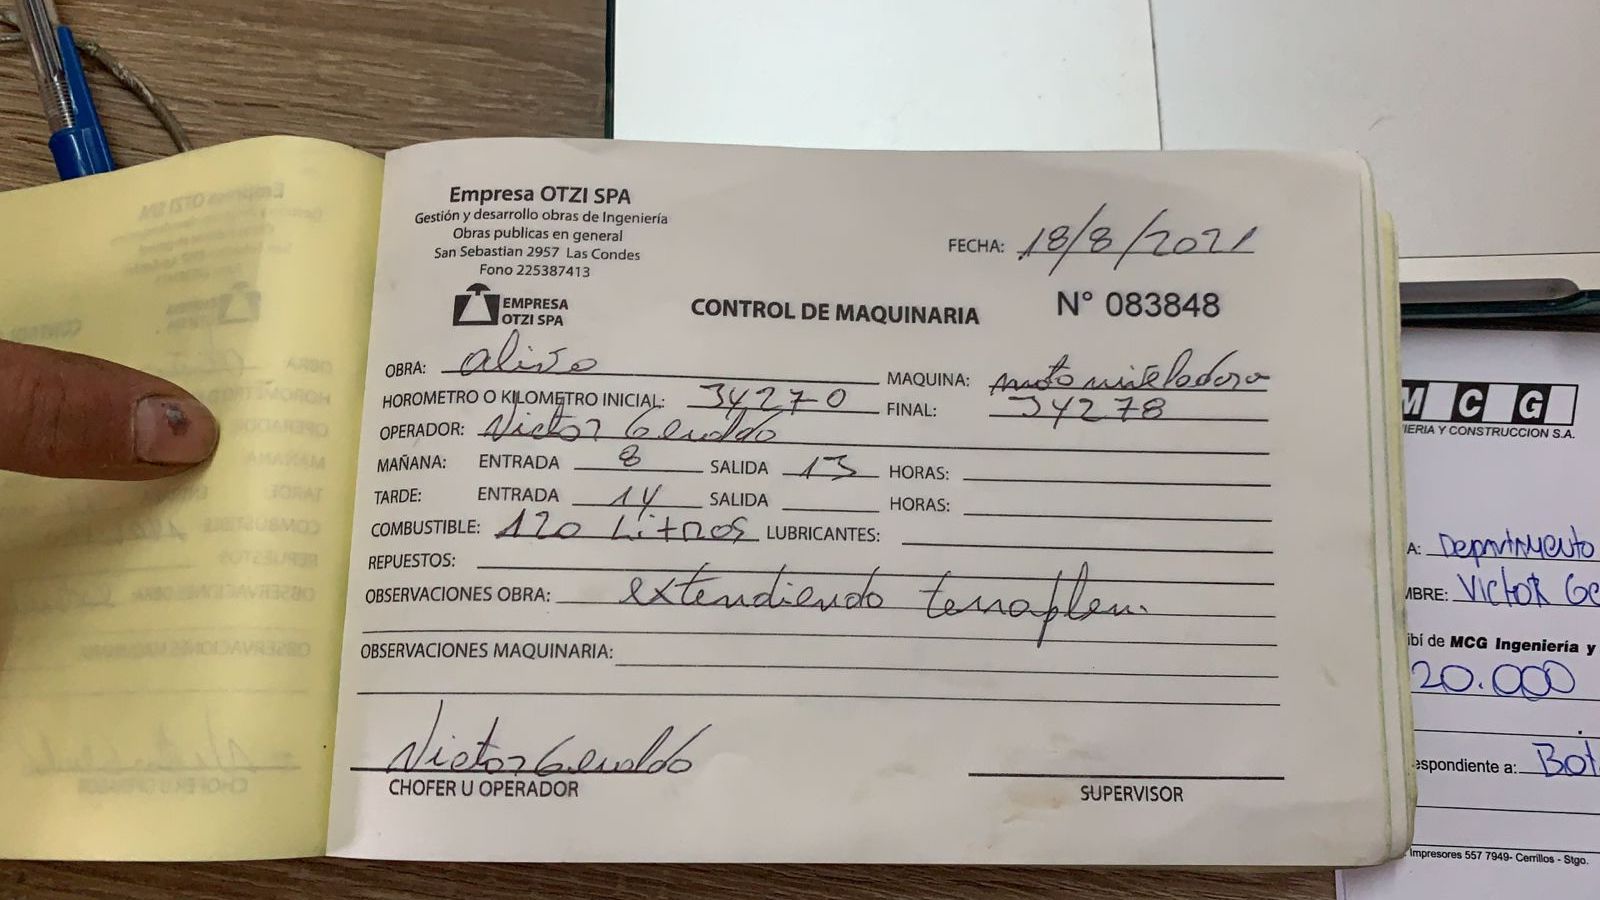 Empresa OTZI SPA
Gestión y desarrollo obras de Ingeniería
Obras publicas en general
San Sebastian 2957 Las Condes
Fono 225387413
EMPRESA
OTZI SPA
FECHA: 18/8/2021
CONTROL DE MAQUINARIA
N° 083848
OBRA:
MAQUINA: motoniveladora
HOROMETRO O KILOMETRO INICIAL: 34270 FINAL: 34278
OPERADOR: Victor Geraldo
MAÑANA: ENTRADA 8 SALIDA 13 HORAS:
TARDE: ENTRADA 14 SALIDA HORAS:
COMBUSTIBLE: 120 Litros LUBRICANTES:
REPUESTOS:
OBSERVACIONES OBRA: extendiendo terraplen.
OBSERVACIONES MAQUINARIA:
Victor Geraldo
CHOFER U OPERADOR
SUPERVISOR
MCG
IERIA Y CONSTRUCCION S.A.
A: Departamento
MBRE: VICTOR Ge
ibí de MCG Ingeniería y
20.000
espondiente a: Bot
Impresores 557 7949- Cerrillos - Stgo.